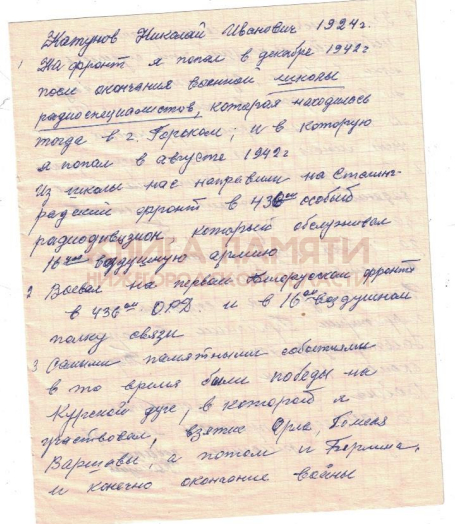 Жатунов Николай Иванович 1924г.
1 На фронт я попал в декабре 1942г
после окончания военной школы
радиоспециалистов, которая находилась
тогда в г. Горьком; и в которую
я попал в августе 1942г
Из школы нас направили на Сталинг-
радский фронт в 436ой особый
радиодивизион который обслуживал
16ую воздушную армию
КНИГА ПАМЯТИ
2 Воевал на первом Белорусском фронте
в 436ом ОРД и в 16ом воздушном
полку связи
3 Самыми памятными событиями
в то время были победы на
Курской дуге, в которой я
участвовал, взятие Орла, Гомеля
Варшавы, а потом и Берлина,
и конечно окончание войны